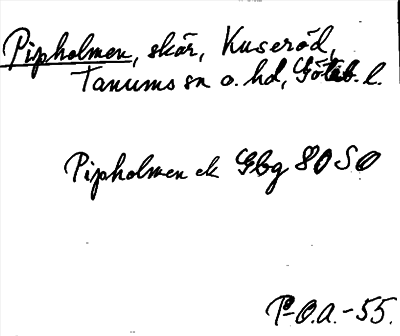 Pipholmen, skär, Kuseröd,
Tanums sn o. hd, Göteb. l.
Pipholmen ek Gbg 80 SO
P-O.A.-55.